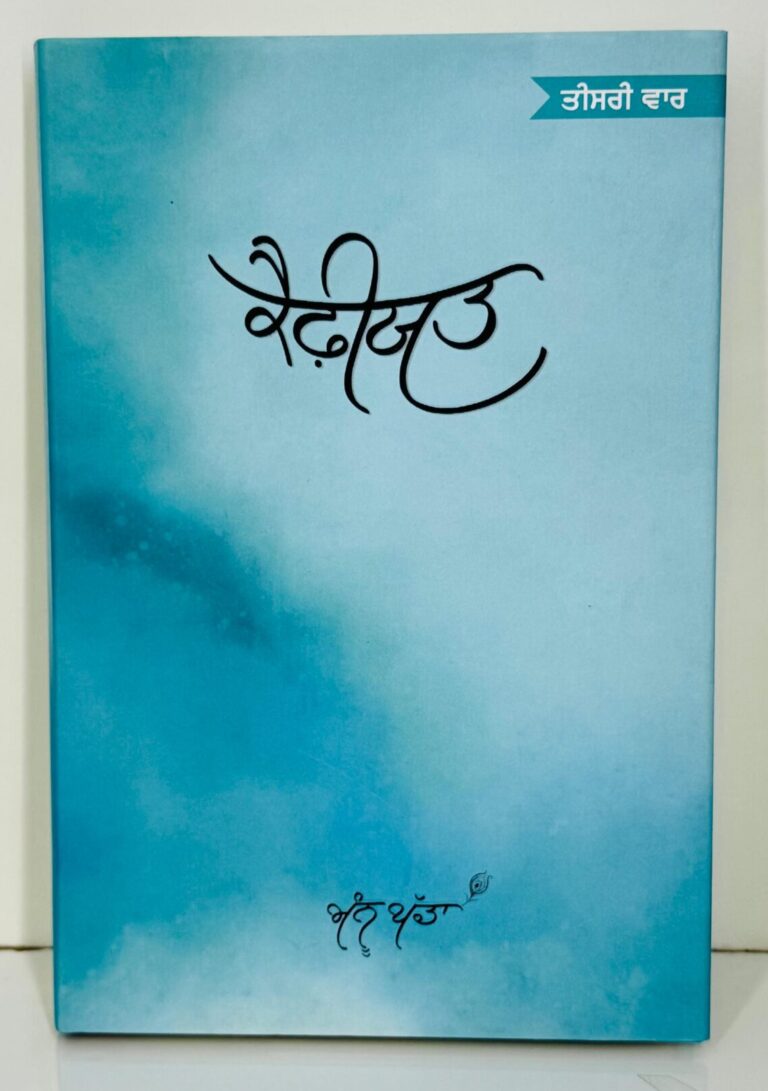 ਤੀਸਰੀ ਵਾਰ
ਕੈਫ਼ੀਯਤ